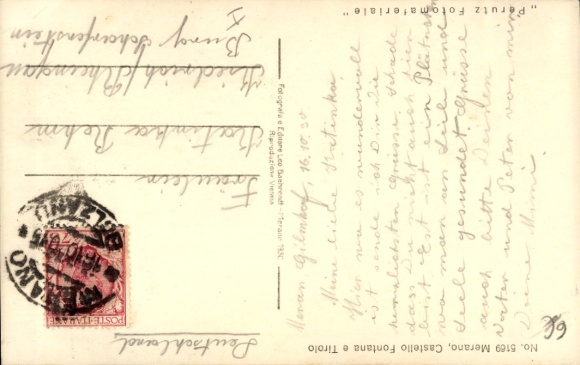 No. 5169 Merano, Castello Fontana e Tirolo
"Perutz Fotomateriale"
Meran Gilmhof, 16.10.30
Meine liebe Katinka!
Hier wo es wundervoll
ist sende ich Dir die
herzlichsten Grüsse. Schade
dass Du nicht auch hier
bist. Es ist ein Plätzchen
wo man an Leib und
Seele gesundet. Grüsse
auch bitte Deinen
Vater und Peter von mir
Deine Mimi.
Fotografia e Editore Leo Baehrendt - Merano 1930
Riproduzione Vietata
POSTE ITALIANE
MERANO
BOLZANO
Fräulein
Katinka Rehm
Friedrich/Rheingau
Burg Scharfenstein
X
Deutschland